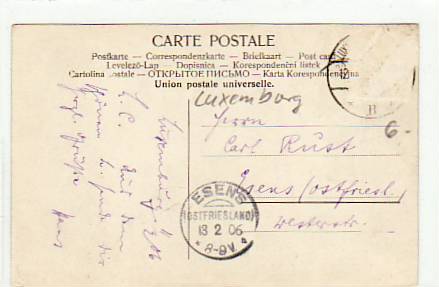 CARTE POSTALE
Postkarte — Correspondenzkarte — Briefkaart — Post card
Levelező-Lap — Dopisnica — Korespondenční lístek
Cartolina postale — ОТКРЫТОЕ ПИСЬМО — Karta Korespondencyjna
Union postale universelle.
Luxemburg
Herrn
Carl Rust
Esens (Ostfriesl.)
Westerstr.
6-
B
ESENS
(OSTFRIESLAND)
13 2 06
* 8-9V. *
Luxemburg
06
L. C. Aus dem
schönen L. sende dir
Grüße